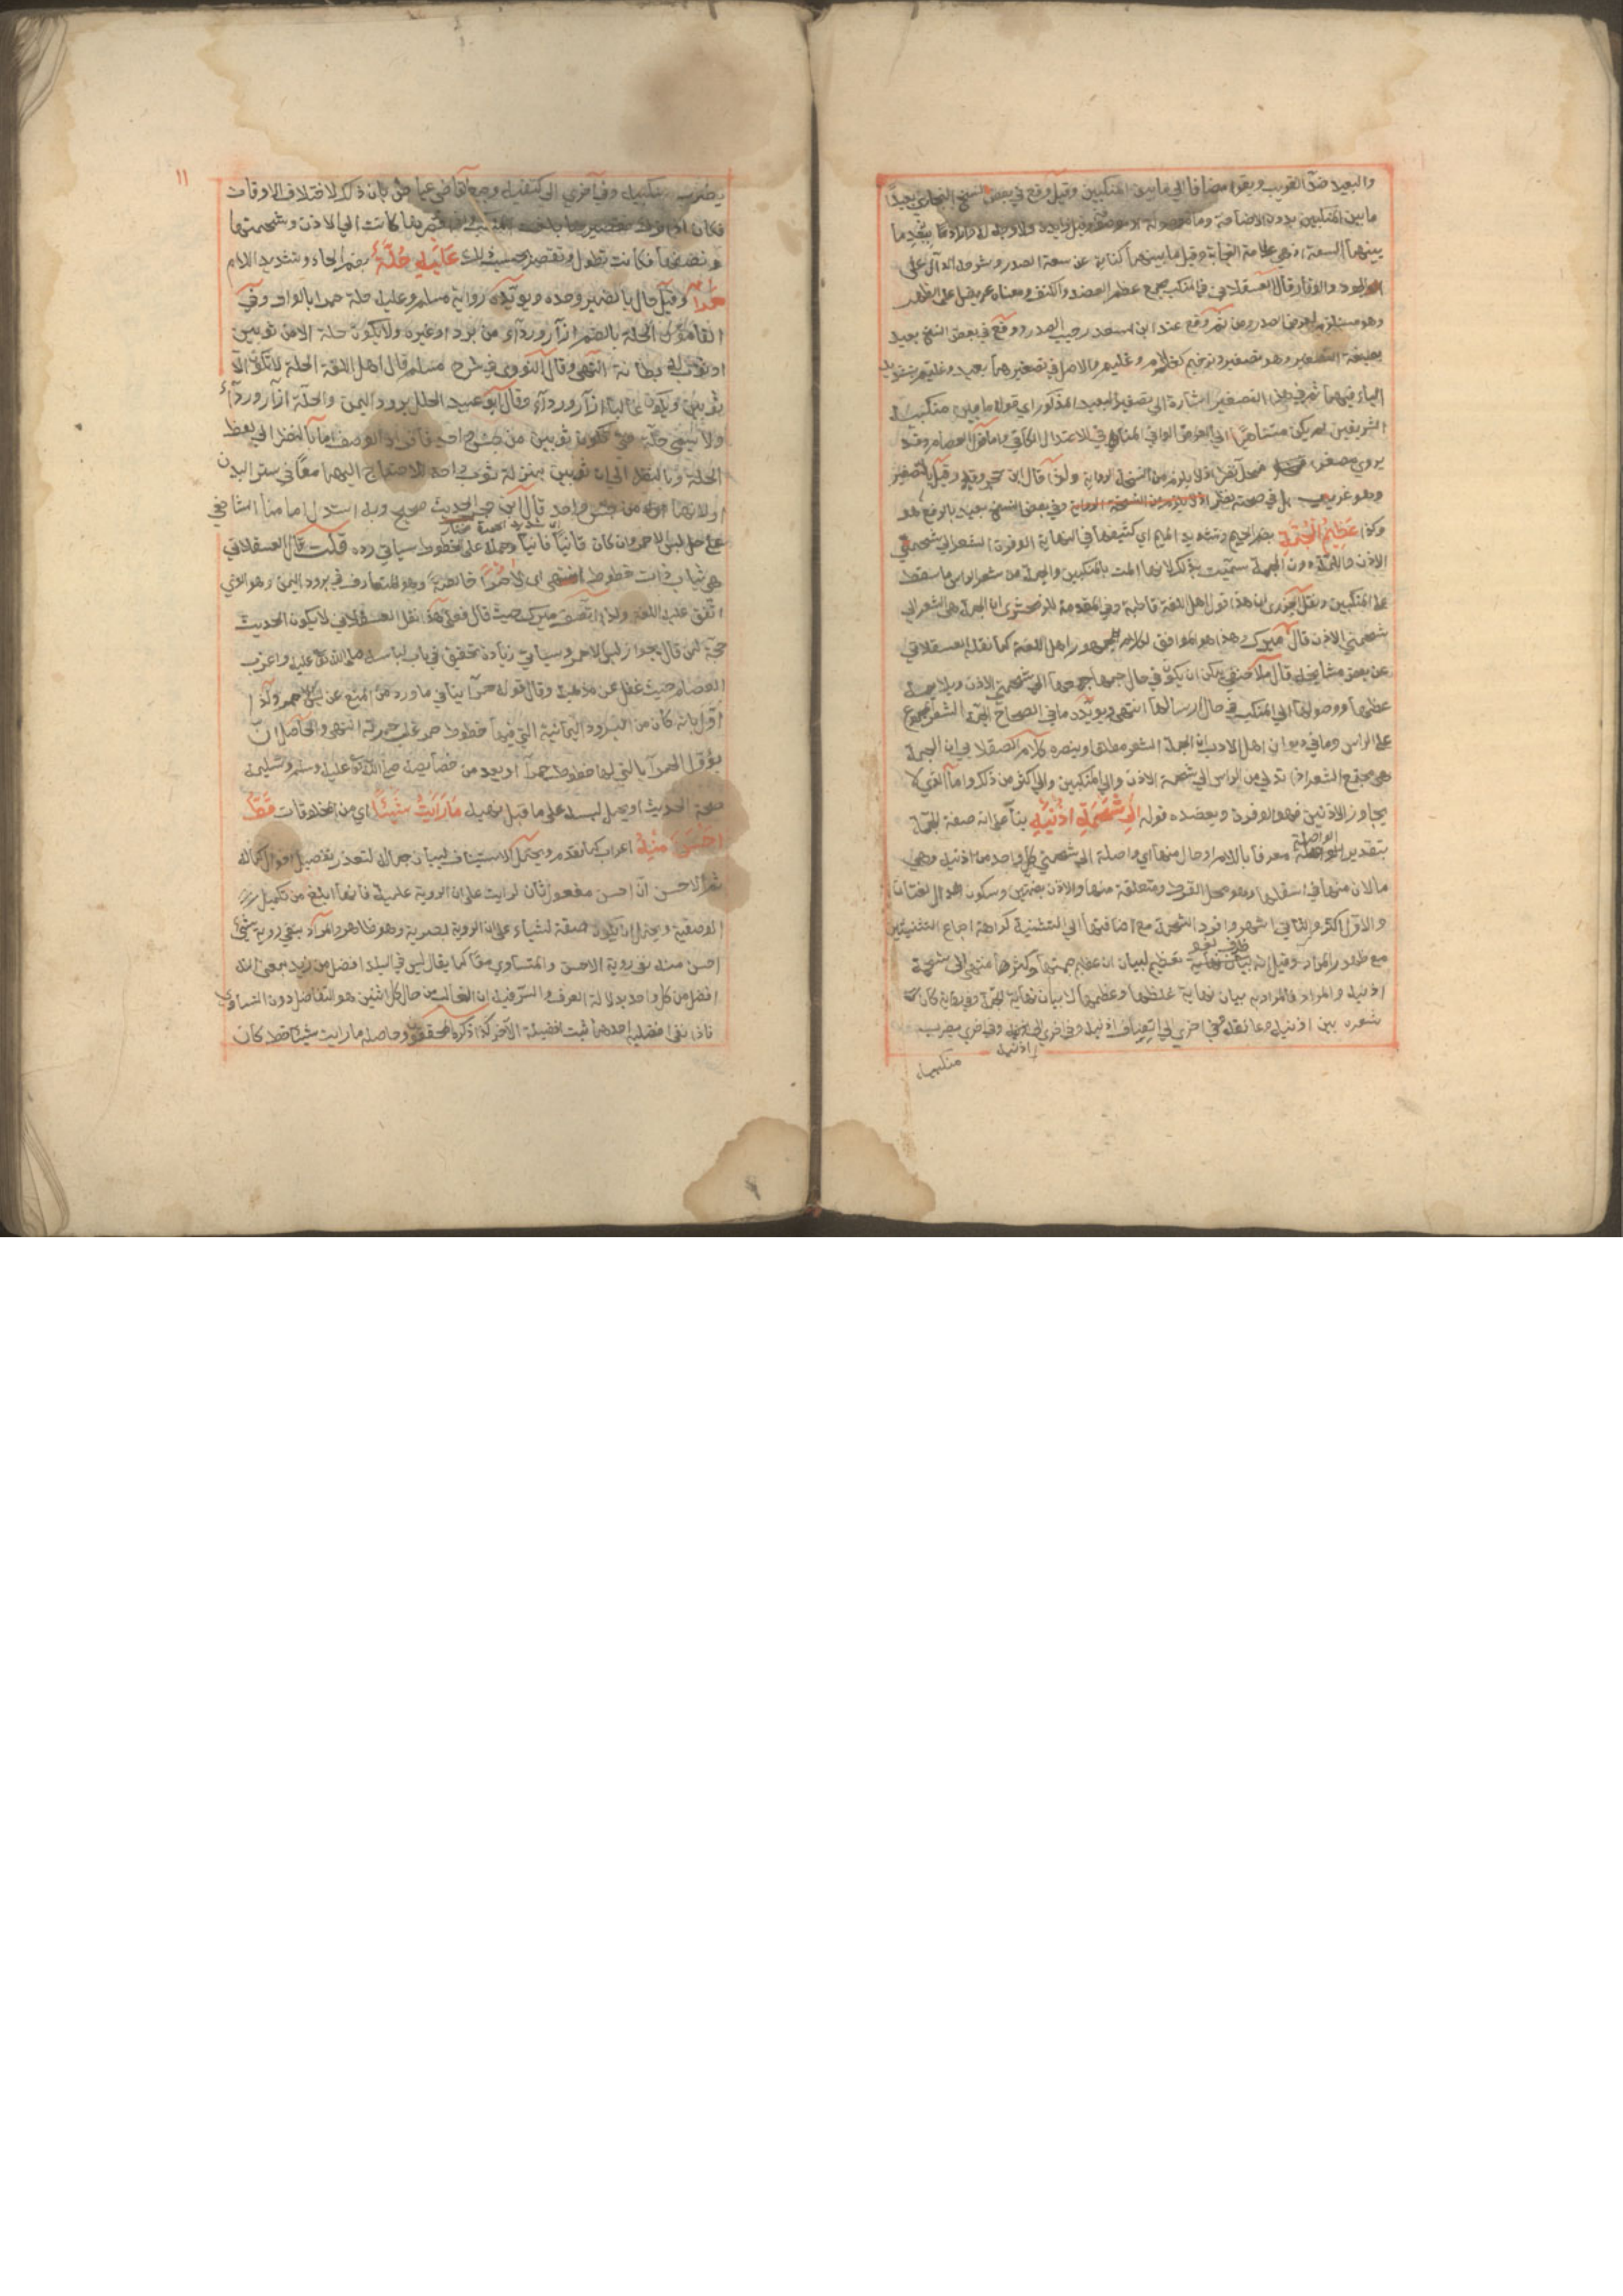 والبعيد ضد القريب ويقرأ مضافا الي ما بين المنكبين وقيل وقع في بعض النسخ البخاري بعيدا
ما بين المنكبين بدون الاضافة وما موصولة او موصوفة وقيل زايدة
بينهما السعة اذ هي علامة النجابة وقيل ما بينهما كناية عن سعة الصدر وشرحه الدال علي
الجود والوقار قال العسقلاني المنكب مجمع عظم العضد والكتف ومعناه عريض اعلي الظهر
وهو مستلزم لعرض الصدر ومن ثم وقع عند ابن سعد رحيب الصدر ووقع في بعض النسخ بعيد
بصيغة التصغير وهو تصغير ترخيم كغلام وغليم والاصل في تصغيرهما بعيد وغليم بتشديد
الياء فيهما ثم في هذا التصغير اشارة الي تصغير البعيد المذكور اي قوله ما بين منكبيه
الشريفين لم يكن متناهيا الي العرض الوافي المنافي للاعتدال الكافي واما قول العصام وقد
يروي مصغرا فمحل نظر اذ لا يلزم من النسخة الرواية ولذا قال ابن حجر وقيل بالتصغير
وهو غريب بل في صحته نظر وفي بعض النسخ بعيد بالرفع هو
وكذا عَظِيمُ الْجُمَّةِ بضم الجيم وتشديد الميم اي كثيفها في النهاية الوفرة الشعر الي شحمة
الاذن واللمة دون الجمة سميت بذلك لانها المت بالمنكبين والجمة من شعر الراس ما سقط
علي المنكبين ونقل الجزري ان هذا قول اهل اللغة قاطبة وفي المقدمة للزمخشري ان الجمة هي الشعر الي
شحمتي الاذن قال ميرك وهذا هو الموافق لكلام جمهور اهل اللغة كما نقله العسقلاني
عن بعض مشايخه قال ملا حنفي يمكن ان يكون في حال جمعها الي شحمتي الاذن وبملاحظة
عظمها ووصولها الي المنكب في حال ارسالها انتهي ويويده ما في الصحاح الجمة الشعر المجموع
علي الراس وما في ديوان اهل الادب ان الجمة الشعر مطلقا وينصره كلام العسقلاني ان الجمة
هي مجتمع الشعر اذا تدلي من الراس الي شحمة الاذن والي المنكبين والي اكثر من ذلك واما الذي لا
يجاوز الاذنين فهو الوفرة ويعضده قوله الي شَحْمَةِ اُذُنَيْهِ بناء علي انه صفة الجمة
بتقدير الواصلة معرفا باللام او حال منها اي واصلة الي شحمتي كل واحد من اذنيه وهي
ما لان منها في اسفلها وهو محل القرط ومتعلقة منها والاذن بضمتين وسكون الذال لغتان
والاول اكثر والثاني اشهر وافرد الشحمة مع اضافتها الي التثنية كراهة اجتماع التثنيتين
مع ظهور المراد وقيل انه ظرف لغو لعظيم لبيان ان عظيم جمتها وكثرها منتهي الي شحمة
اذنيه والمراد فالمراد به بيان نهاية غلظها وعظمها لا بيان نهاية الجمة وفي رواية كان
شعره بين اذنيه وعاتقه وفي اخري الي انصاف اذنيه وفي اخري الي اذنيه وفي اخري يضرب
اذنيه
منكبيه
١١
يضرب منكبيه وفي اخري الي كتفيه وجمع القاضي عياض بان ذلك لاختلاف الاوقات
فكان اذا ترك تقصيرها بلغت المنكب واذا قصرها كانت الي الاذن وشحمتها
ونصفها فكانت تطول وتقصر بحسب ذلك عَلَيْهِ حُلَّةٌ بضم الحاء وتشديد اللام
حَمْرَاءُ وقيل حال بالضمير وحده ويويده رواية مسلم وعليه حلة حمراء بالواو وفي
القاموس الحلة بالضم ازار ورداء من برد او غيره ولا يكون حلة الا من ثوبين
او ثوب له بطانة انتهي وقال النووي في شرح مسلم قال اهل اللغة الحلة لا تكون الا
ثوبين ويكون غالبا ازار ورداء وقال ابو عبيد الحلل برود اليمن والحلة ازار ورداء
ولا يسمي حلة حتي تكون ثوبين من جنس واحد فافراد الوصف اما بالنظر الي لفظ
الحلة وبالنظر الي ان ثوبين بمنزلة ثوب واحد للاحتياج اليهما معا في ستر البدن
او لانهما من جنس واحد قال ابن حجر الحديث صحيح وبه استدل امامنا الشافعي
علي حل لبس الاحمر وان كان قانيا وحمله علي ذي خطوط سياتي رده قلت قال العسقلاني
هي ثياب ذات خطوط انتهي اي لا حمراء خالصة وهو المتعارف في برود اليمن وهو الذي
اتفق عليه اهل اللغة ولذا انصف ميرك حيث قال فعلي هذا نقل العسقلاني لا يكون الحديث
حجة لمن قال بجواز لبس الاحمر وسياتي زيادة تحقيق في باب لباسه صلي الله تعالي عليه واغرب
العصام حيث غفل عن مذهبه وقال قوله حمرا ينافي ما ورد من المنع عن لبس الاحمر ولذا
اول بانه كان من البرود اليمانية التي فيها خطوط حمر غلب حمرته انتهي والحاصل ان
يؤول الحمراء بالتي لها خطوط حمراء او يعد من خصايصه صلي الله تعالي عليه وسلم وتسليمة
صحة الحديث او يحمل لبسه علي ما قبل نهيه مَا رَأيْتُ شَيْئاً اي من المخلوقات قَطُّ
اَحْسَنَ مِنْهُ اعراب كما تقدم ويحتمل الاستيناف لبيان جمال لتعذر تفصيل احوال كماله
ثم الاحسن ان احسن مفعول ثان لرايت علي ان الروية علمية فانها ابلغ من تكميل
الوصفية ويحتمل ان يكون صفة لشياء علي ان الروية بصرية وهو ظاهر والمراد بنفي روية شيئ
احسن منه نفي روية الاحسن والمتساوي معا كما يقال ليس في البلد افضل من زيد بمعني انه
افضل من كل واحد بدلالة العرف والسر فيه ان الغالب من حال كل اثنين هو التفاضل دون التساوي
فاذا نفي افضلية احدهما ثبت افضلية الاخر كذا ذكره المحققون وحاصله ما رايت شيئا قط كان